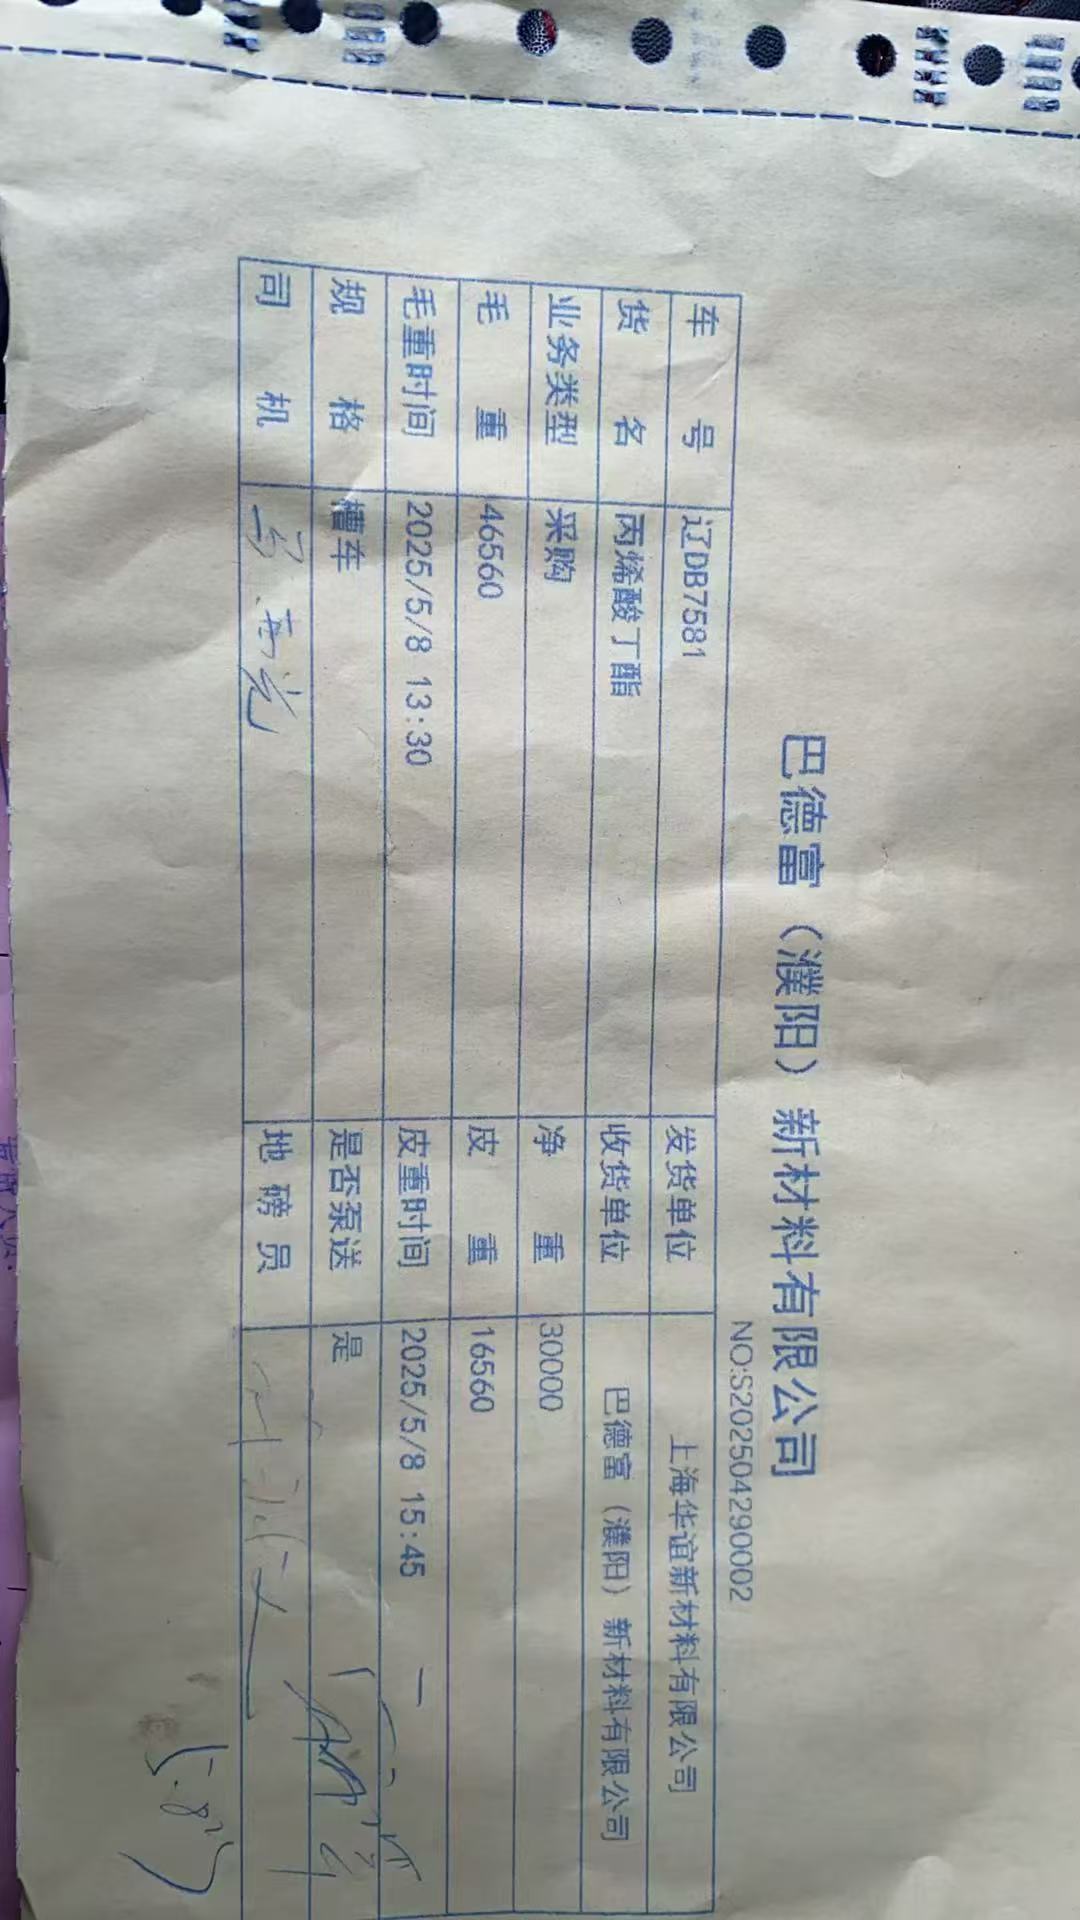 巴德富（濮阳）新材料有限公司
NO:S202504290002
车 号 辽DB7581 发货单位 上海华谊新材料有限公司
货 名 丙烯酸丁酯 收货单位 巴德富（濮阳）新材料有限公司
业务类型 采购 净 重 30000
毛 重 46560 皮 重 16560
毛重时间 2025/5/8 13:30 皮重时间 2025/5/8 15:45
规 格 槽车 是否泵送 是
司 机 地 磅 员